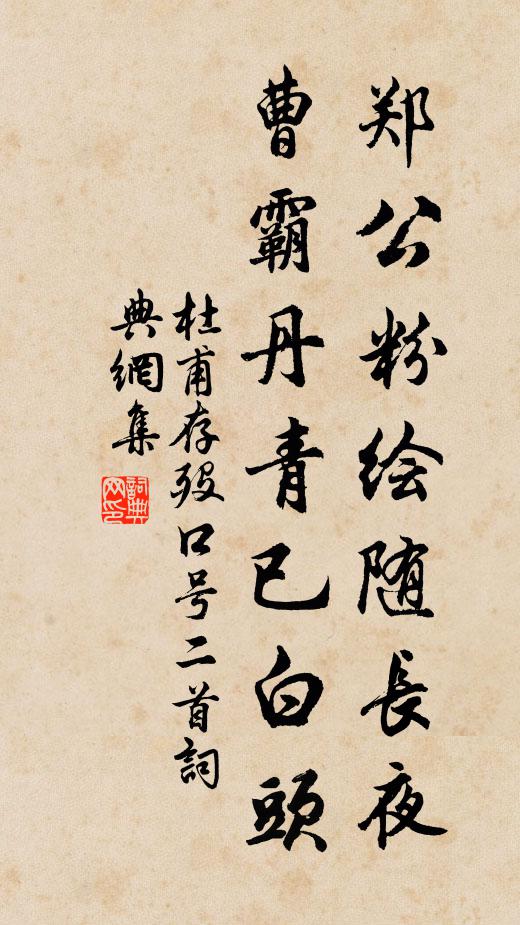 郑公粉绘随長夜
曹霸丹青已白頭
杜甫存殁口号二首詞
典網集
詞典网印